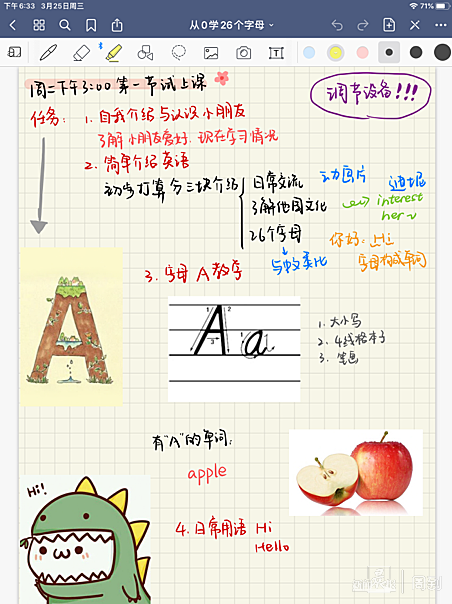 下午6:33 3月25日周三
71%
从0学26个字母
周二下午3:00 第一节试上课
调节设备!!!
任务: 1. 自我介绍与认识小朋友
了解小朋友爱好, 现在学习情况
2. 简单介绍英语
初步打算分三块介绍
日常交流
动画片
迪士尼
了解他国文化
interest
her~
26个字母
你好: Hi
字母构成单词
3. 字母 A 教学
1 2
3
A a
1. 大小写
2. 4线格本子
3. 笔画
有"A"的单词:
apple
Hi!
4. 日常用语 Hi
Hello